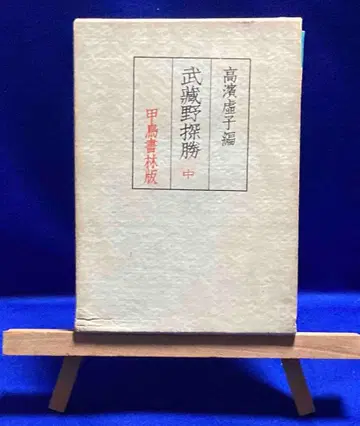 高濱虚子編
武蔵野探勝 中
甲鳥書林版